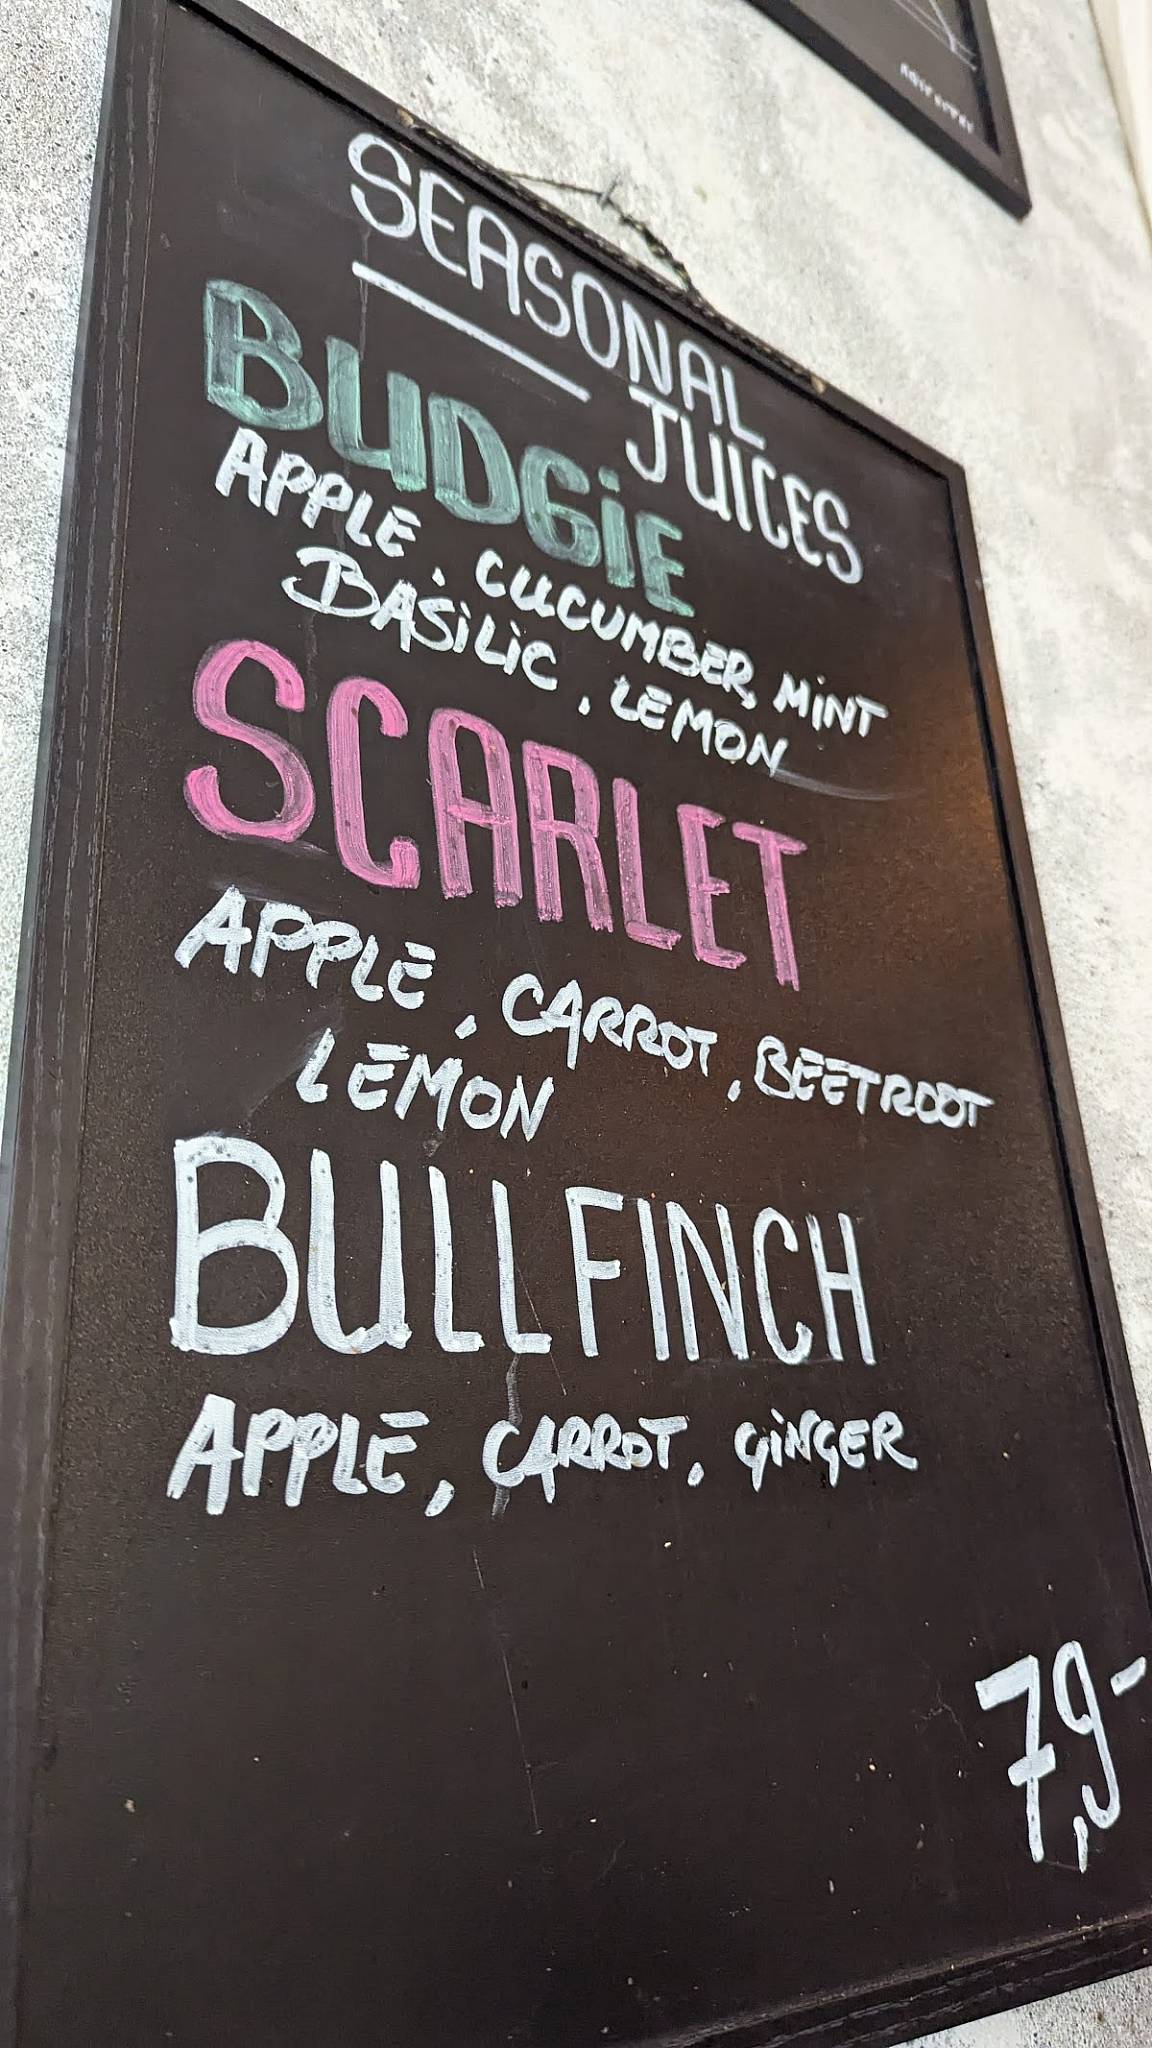 SEASONAL
JUICES
BUDGiE
APPLE, CUCUMBER, MiNT
BASiLiC, LEMON
SCARLET
APPLE, CARROT, BEETROOT
LEMON
BULLFINCH
APPLE, CARROT, GiNGER
7,9-